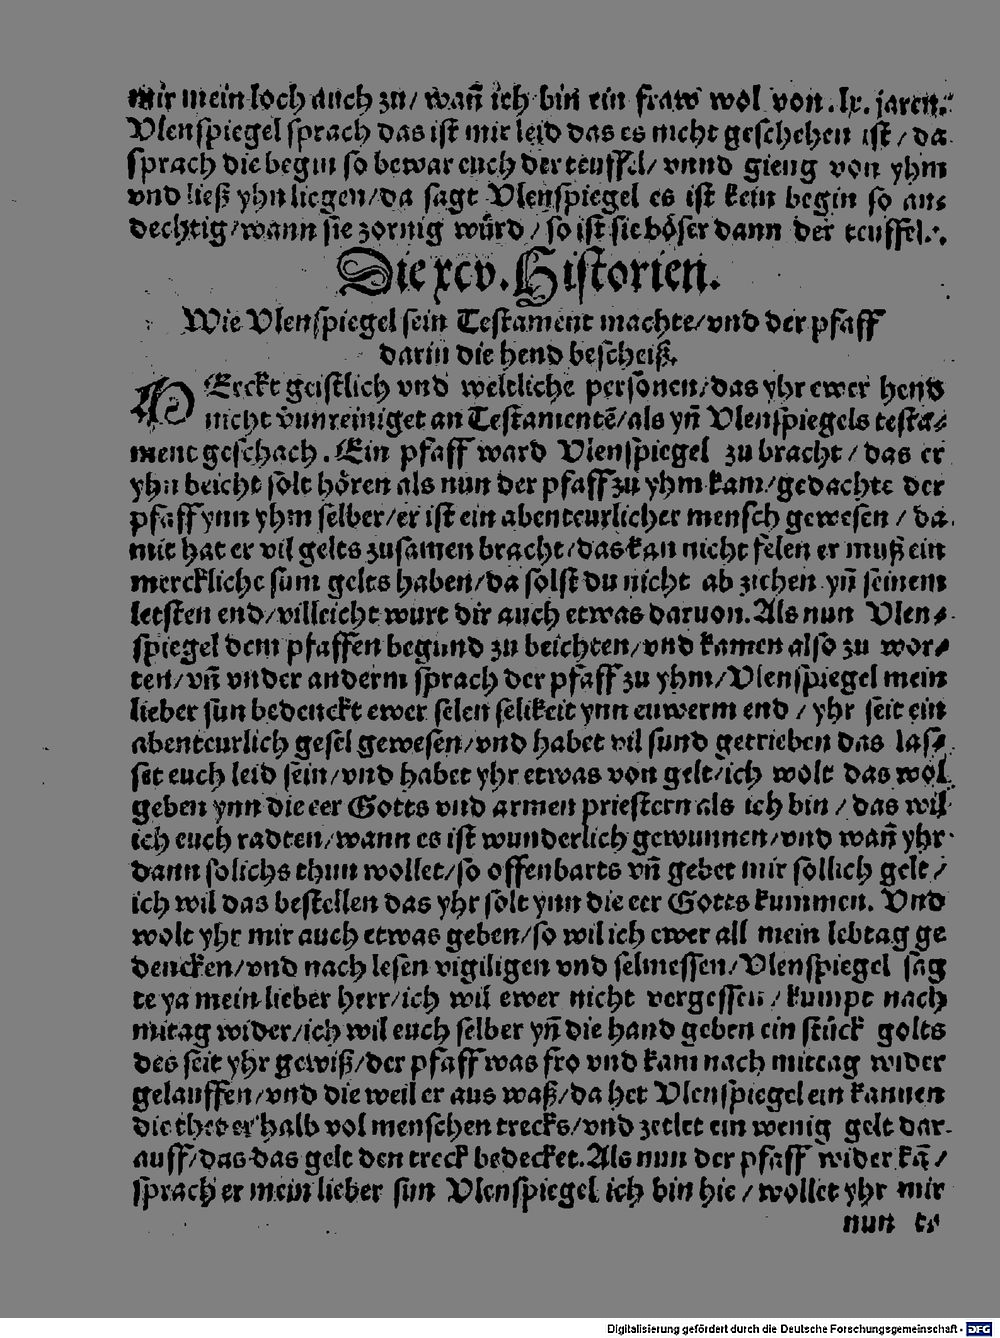 mir mein loch auch zu/ wañ ich bin ein fraw wol von .lx. jaren.
Vlenspiegel sprach das ist mir leid das es nicht geschehen ist / da
sprach die begin so bewar euch der teuffel/ vnnd gieng von yhm
vnd ließ yhn liegen/da sagt Vlenspiegel es ist kein begin so an⸗
dechtig/wann sie zornig würd / so ist sie böser dann der teuffel.
Die xcv. Historien.
Wie Vlenspiegel sein Testament machte/vnd der pfaff
darin die hend bescheiß.
MErckt geistlich vnd weltliche personen/das yhr ewer hend
nicht vunreiniget an Testamentē/als yñ Vlenspiegels testa⸗
ment geschach. Ein pfaff ward Vlenspiegel zu bracht / das er
yhn beicht solt hören als nun der pfaff zu yhm kam/gedachte der
pfaff ynn yhm selber/er ist ein abenteurlicher mensch gewesen / da
mit hat er vil gelts zusamen bracht/das kan nicht felen er muß ein
merckliche sum gelts haben/da solst du nicht ab ziehen yñ seinem
letsten end/villeicht wurt dir auch etwas daruon. Als nun Vlen⸗
spiegel dem pfaffen begund zu beichten/vnd kamen also zu wor⸗
ten/vñ vnder anderm sprach der pfaff zu yhm/Vlenspiegel mein
lieber sun bedenckt ewer selen selikeit ynn euwerm end / yhr seit ein
abenteurlich gesel gewesen/vnd habet vil sund getrieben das las⸗
set euch leid sein/vnd habet yhr etwas von gelt/ich wolt das wol
geben ynn die eer Gotts vnd armen priestern als ich bin / das wil
ich euch radten/wann es ist wunderlich gewunnen/vnd wañ yhr
dann solichs thun wollet/so offenbarts vñ gebet mir sollich gelt /
ich wil das bestellen das yhr solt ynn die eer Gotts kummen. Vnd
wolt yhr mir auch etwas geben/so wil ich ewer all mein lebtag ge
dencken/vnd nach lesen vigiligen vnd selmessen/Vlenspiegel sag
te ya mein lieber herr/ich wil ewer nicht vergessen / kumpt nach
mitag wider/ich wil euch selber yñ die hand geben ein stück golts
des seit yhr gewiß/der pfaff was fro vnd kam nach mittag wider
gelauffen/vnd die weil er aus waß/da het Vlenspiegel ein kannen
die thet er halb vol menschen trecks/vnd zetlet ein wenig gelt dar
auff/das das gelt den treck bedecket. Als nun der pfaff wider kā /
sprach er mein lieber sun Vlenspiegel ich bin hie / wollet yhr mir
nun
Digitalisierung gefördert durch die Deutsche Forschungsgemeinschaft - DFG